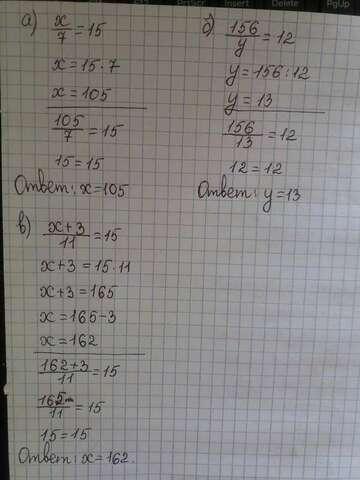 а) x/7 = 15
x = 15 · 7
x = 105
105/7 = 15
15 = 15
Ответ: x = 105
б) 156/y = 12
y = 156 : 12
y = 13
156/13 = 12
12 = 12
Ответ: y = 13
в) x+3/11 = 15
x+3 = 15 · 11
x+3 = 165
x = 165-3
x = 162
162+3/11 = 15
165/11 = 15
15 = 15
Ответ: x = 162.
Insert
Delete
PgUp